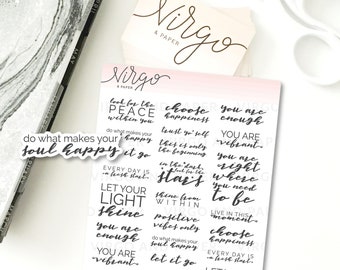 Virgo
& PAPER
do what makes your
soul happy
Virgo
& PAPER
look for the
PEACE
within you
do what makes your
soul happy
let it go
EVERY DAY IS
a fresh start
LET YOUR
LIGHT
shine
you are
enough
YOU ARE
vibrant
choose
happiness
trust yourself
this is only
the beginning
in the dark,
look for the
stars
SHINE FROM
WITHIN
positive
vibes only
do what makes your
soul happy
let it go
you are
enough
YOU ARE
vibrant
you are
right
where
you need
to be
LIVE IN THIS
moment
choose
happiness
EVERY DAY IS
a fresh start
LET YOUR